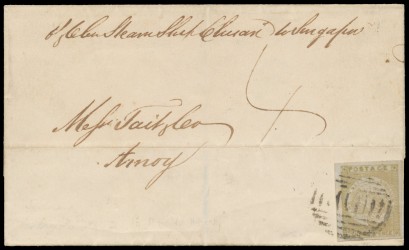 Steam Ship Chusan to Singapore
Messrs Tait & Co
Amoy
POSTAGE